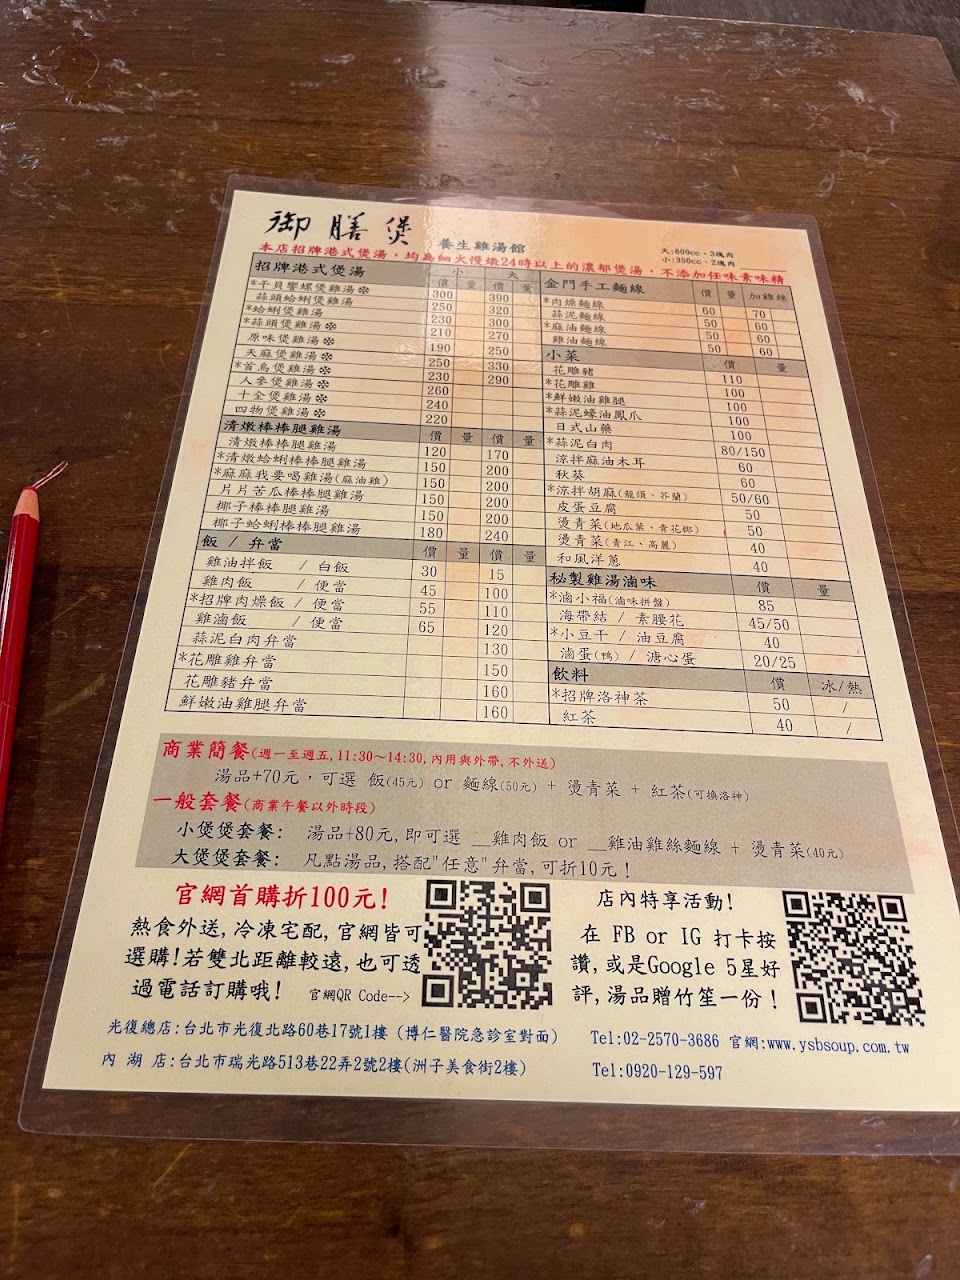 御膳煲 養生雞湯館
大:600cc、3塊肉
小:350cc、2塊肉
本店招牌港式煲湯，均為細火慢燉24時以上的濃郁煲湯，不添加任味素味精
招牌港式煲湯 小 大
價 量 價 量
*干貝響螺煲雞湯❊ 300 390
蒜頭蛤蜊煲雞湯 250 320
*蛤蜊煲雞湯 230 300
*蒜頭煲雞湯❊ 210 270
原味煲雞湯❊ 190 250
天麻煲雞湯❊ 250 330
*首烏煲雞湯❊ 230 290
人參煲雞湯❊ 260
十全煲雞湯❊ 240
四物煲雞湯❊ 220
清燉棒棒腿雞湯 價 量 價 量
清燉棒棒腿雞湯 120 170
*清燉蛤蜊棒棒腿雞湯 150 200
*麻麻我要喝雞湯(麻油雞) 150 200
片片苦瓜棒棒腿雞湯 150 200
椰子棒棒腿雞湯 150 200
椰子蛤蜊棒棒腿雞湯 180 240
飯 / 弁當 價 量 價 量
雞油拌飯 / 白飯 30 15
雞肉飯 / 便當 45 100
*招牌肉燥飯 / 便當 55 110
雞滷飯 / 便當 65 120
蒜泥白肉弁當 130
*花雕雞弁當 150
花雕豬弁當 160
鮮嫩油雞腿弁當 160
金門手工麵線 價 量 加雞絲
*肉燥麵線 60 70
蒜泥麵線 50 60
*麻油麵線 50 60
雞油麵線 50 60
小菜 價 量
花雕豬 110
*花雕雞 100
*鮮嫩油雞腿 100
*蒜泥蠔油鳳爪 100
日式山藥 100
*蒜泥白肉 80/150
涼拌麻油木耳 60
秋葵 60
*涼拌胡麻(龍須、芥蘭) 50/60
皮蛋豆腐 50
燙青菜(地瓜葉、青花椰) 50
燙青菜(青江、高麗) 40
和風洋蔥 40
秘製雞湯滷味 價 量
*滷小福(滷味拼盤) 85
海帶結 / 素腰花 45/50
*小豆干 / 油豆腐 40
滷蛋(鴨) / 溏心蛋 20/25
飲料 價 冰/熱
*招牌洛神茶 50 /
紅茶 40 /
商業簡餐(週一至週五,11:30～14:30,內用與外帶,不外送)
湯品+70元，可選 飯(45元) or 麵線(50元) + 燙青菜 + 紅茶(可換洛神)
一般套餐(商業午餐以外時段)
小煲煲套餐: 湯品+80元,即可選 __雞肉飯 or __雞油雞絲麵線 + 燙青菜(40元)
大煲煲套餐: 凡點湯品,搭配"任意"弁當,可折10元！
官網首購折100元!
熱食外送,冷凍宅配,官網皆可
選購!若雙北距離較遠,也可透
過電話訂購哦! 官網QR Code-->
店內特享活動!
在 FB or IG 打卡按
讚,或是Google 5星好
評,湯品贈竹笙一份！
光復總店:台北市光復北路60巷17號1樓 (博仁醫院急診室對面) Tel:02-2570-3686 官網:www.ysbsoup.com.tw
內 湖 店:台北市瑞光路513巷22弄2號2樓(洲子美食街2樓) Tel:0920-129-597